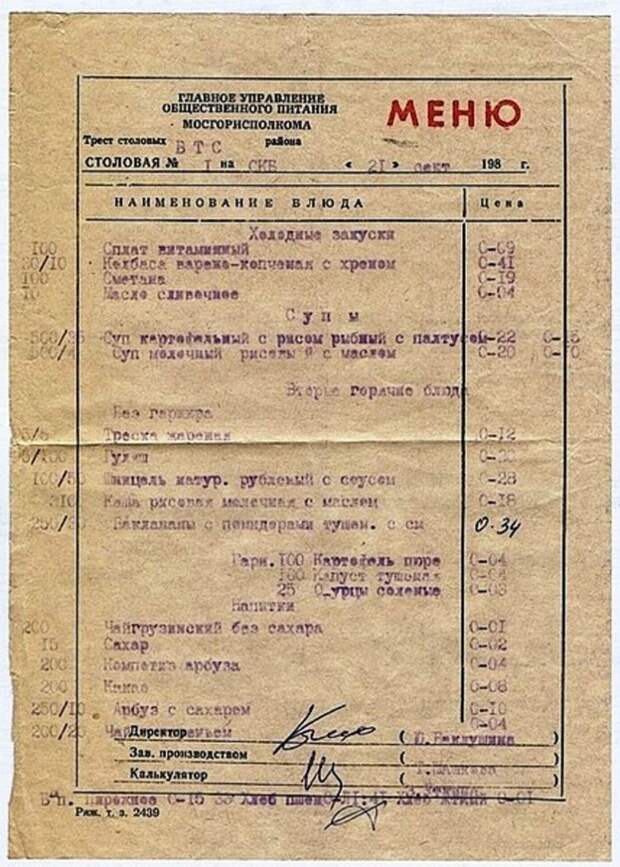 ГЛАВНОЕ УПРАВЛЕНИЕ
ОБЩЕСТВЕННОГО ПИТАНИЯ
МОСГОРИСПОЛКОМА
МЕНЮ
Трест столовых ВТС района
СТОЛОВАЯ № I на СКБ « 21 » сент 198 г.
НАИМЕНОВАНИЕ БЛЮДА Цена
Холодные закуски
100 Сплат витаминный 0-09
30/10 Колбаса варено-копченая с хреном 0-41
100 Сметана 0-19
10 Масло сливочное 0-04
Супы
500/35 Суп картофельный с рисом рыбный с палтусом 0-22
500/4 Суп молочный рисовый с маслом 0-20 0-10
Вторые горячие блюда
Без гарнира
Треска жареная 0-12
Гуляш
100/50 Шницель натур. рубленый с соусом 0-28
210 Каша рисовая молочная с маслом 0-18
250/30 Баклажаны с помидорами тушен. с см 0-34
Гарн. 100 Картофель пюре 0-04
Капуст тушеная 0-04
25 О урцы соленые 0-03
Напитки
200 Чайгрузинский без сахара 0-01
15 Сахар 0-02
200 Компотиз арбуза 0-04
200 Какао 0-08
250/10 Арбуз с сахаром 0-10
200/20 Чай 0-04
Директор ( )
Зав. производством ( )
Калькулятор ( )
Пирожное 0-15 Хлеб 0-01
Ряж. т. з. 2439